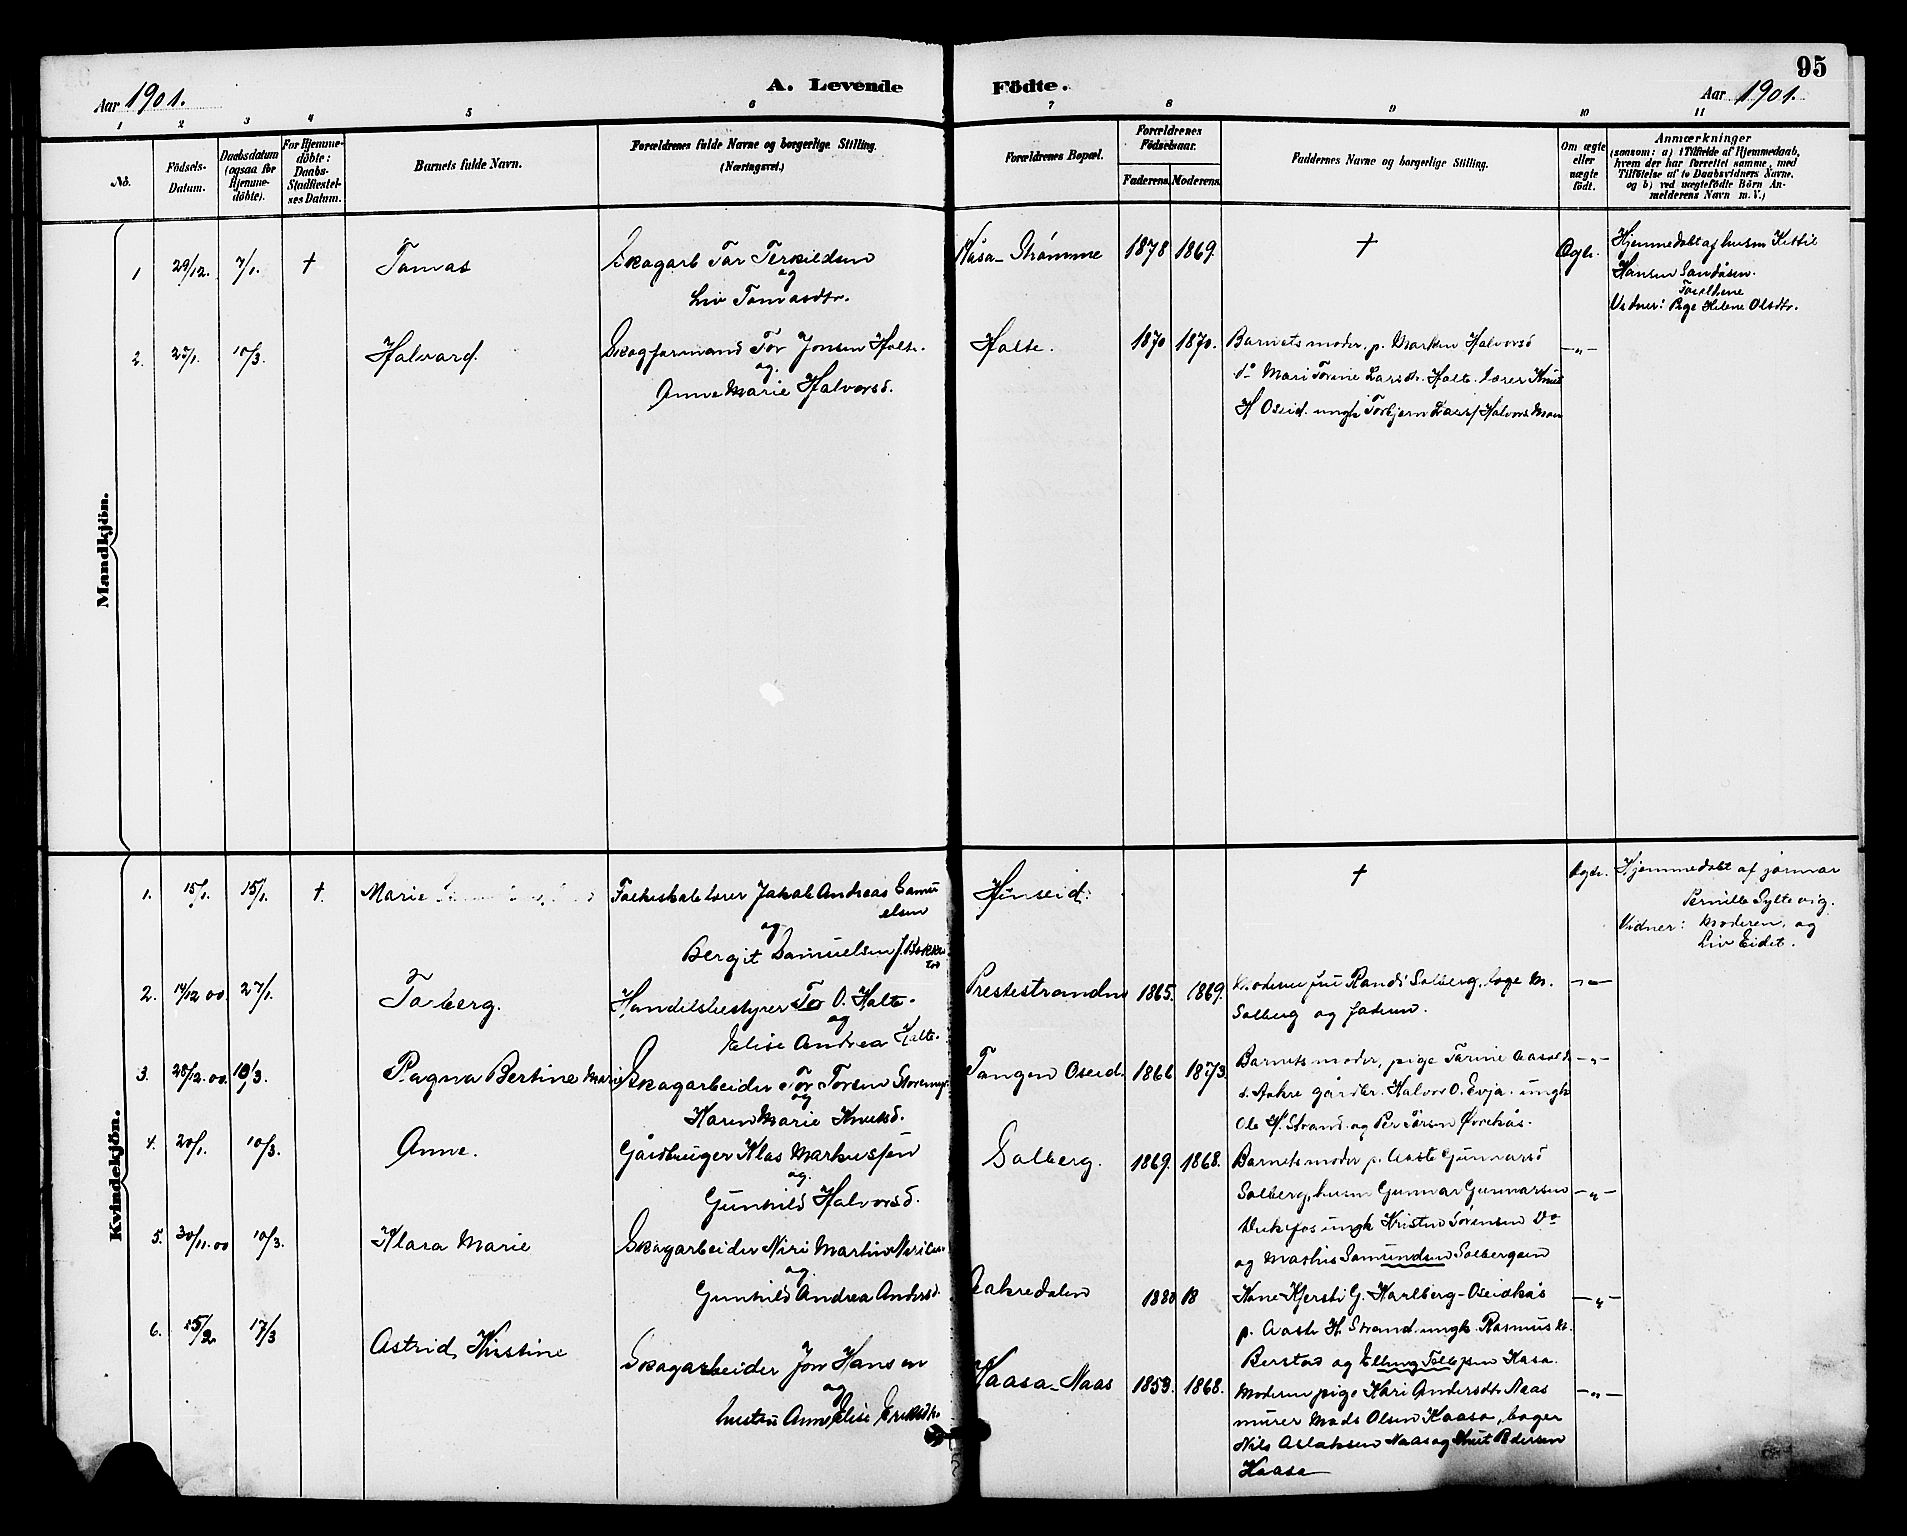 95
Aar 1901.
A. Levende Födte.
Aar 1901.
1 2 3 4 5 6 7 8 9 10 11
No.
Födsels-
Datum.
Daabsdatum
(ogsaa for
Hjemme-
döbte).
For Hjemme-
döbte:
Daabs-
Stadfæstel-
ses Datum.
Barnets fulde Navn.
Forældrenes fulde Navne og borgerlige Stilling.
(Næringsvei.)
Forældrenes Bopæl.
Forældrenes
Födselsaar.
Faderens. Moderens.
Faddernes Navne og borgerlige Stilling.
Om ægte
eller
uægte
födt.
Anmærkninger
(saasom: a) i Tilfælde af Hjemmedaab,
hvem der har forrettet samme, med
Tilföielse af to Daabsvidners Navne,
og b) ved uægtefödte Börn An-
melderens Navn m. V.)
Mandkjön.
1 29/12. 7/1. † Tomas
Skogarb Tor Terkildsen
og
Liv Tomasdtr.
Kåsa-Strømme 1878 1869. † Ægte.
Hjemmedøbt af husm Kittil
Hansen Sandåsen.
Forældrene
Vidner: Pige Helene Olsdtr.
2. 27/1. 10/3. Halvard.
Skogformand Tor Jonsen Holte.
og
Anne Marie Halvorsd.
Holte. 1870 1870.
Barnets moder, p. Marken Halvorsd
do Mari Torine Larsdtr. Holte. lærer Knut
H Oseid. ungk Torbjørn Lars/ Halvors Moen
—„—
Kvindekjön.
1. 15/1. 15/1. †. Marie
Folkeskolelærer Jakob Andreas Samu
elsen
og
Bergit Samuelsen f. Bakke
Hinseid. † Ægte.
Hjemmedøbt af jormor
Pernille Syltevig.
Vidner: Moderen, og
Liv Eidet.
2. 14/12 00. 27/1. Torberg.
Handelsbestyrer Tor O. Holte.
og
Elise Andrea Holte.
Prestestranden 1865. 1869.
Moderen frue Randi Solberg, M.
Solberg og faderen.
—„—
3. 28/12.00. 10/3. Ragna Bertine Marie
Skogarbeider Tor Torsen Storemyr
og
Karen Marie Knutsd.
Tangen Oseid. 1866 1873.
Barnets moder, pige Torine Aasold
s. Aakre gårdbr. Halvor O. Evja. ungk
Ole H. Strand. og Per Torsen Øvrekås.
—„—
4. 20/1. 10/3. Anne.
Gårdbruger Klas Markussen
og
Gunhild Halvorsd.
Solberg. 1869. 1868.
Barnets moder p. Aaste Gunnarsd
Solberg, husm Gunnar Gunnarsen
ungk Kristen Sørensen Do
og Mathis Samundsen Solbergsen
—„—
5. 30/11.00 10/3. Klara Marie
Skogarbeider Niri Martin Nirisen
og
Gunhild Andrea Andersd.
Aakredalen 1880 18
Kone Kjersti G. Karlberg-Oseidkås
p. Aaste H. Strand. ungk. Rasmus N.
Berstad og Elling Tollefsen Kasa.
—„—
6. 15/2 17/3 Astrid Kristine
Skogarbeider Jon Hansen
og
hustru Anne Elise Eriksdtr.
Kaasa-Naas 1853. 1868.
Moderen pige Kari Andersdtr Naas
murer Mads Olsen Kaasa, bager
Nils Aslaksen Naas og Knut Pedersen
Kaasa
—„—